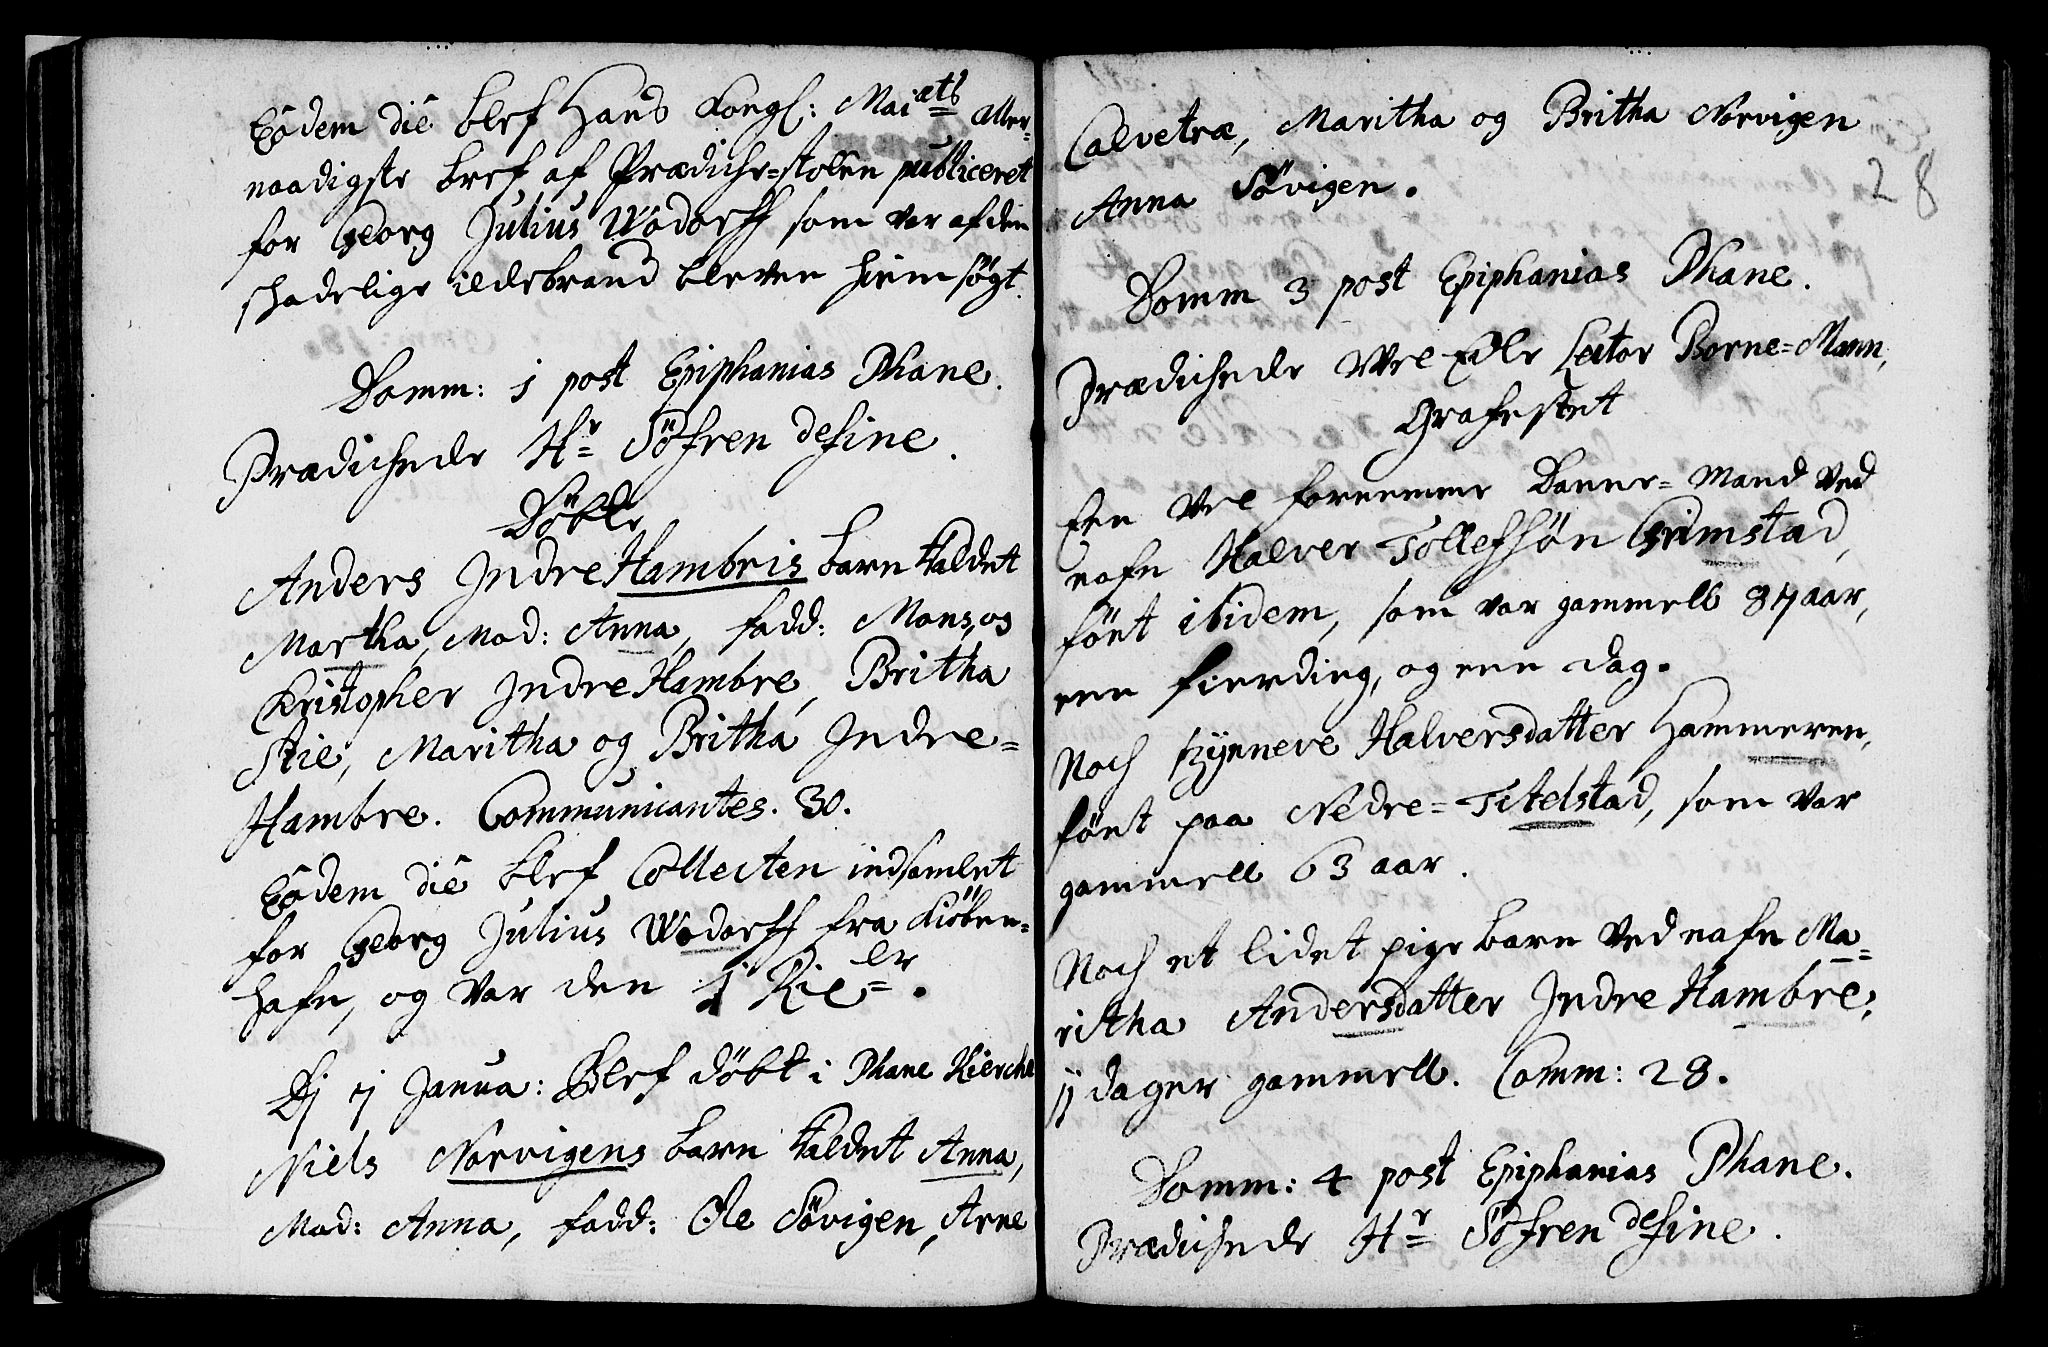 Eodem die blef Hans Kongl: Mai<sup>ets</sup> Aller=
naadigste bref af Prædiche=stolen publiceret
for Georg Julius Wodorff som var af den
schadelige ildebrand bleven hiemsøgt.
Domm: 1 post Epiphanias Phane.
Prædichede H<sup>r</sup> Söfren de fine.
Döbte
Anders Indre Hambris barn kaldet
Martha, Mod: Anna, fadd: Mons, og
Kristopher Indre Hambre, Britha
Stie, Maritha og Britha Indre=
Hambre. Communicantes. 30.
Eodem die blef Collecten indsamlet
for Georg Julius Wodorff fra Kiöben=
hafn, og var den 1 Rix<sup>dr</sup>.
Dj 7 Janua: Blef döbt i Phane Kierche
Niels Norvigens barn kaldet Anna,
Mod: Anna, fadd: Ole Sövigen, Arne
28
Calvetræ, Maritha og Britha Norvigen
Anna Sövigen.
Domm 3 post Epiphanias Phane.
Prædichede Vel Edle Lector Borne=Mann,
Grafestet
Een Vel fornemme Danne=Mand ved
nafn Halver Tollefsön Grimstad,
fönt ibidem, som var gammell 87 aar,
een fierding, og een dag.
Noch Synneve Halversdatter Hammeren,
fönt paa Nedre=Titelstad, som var
gammell 63 aar.
Noch et lidet pige barn ved nafn Ma=
ritha Andersdatter Indre Hambre,
11 dager gammell. Comm: 28.
Domm: 4 post Epiphanias Phane.
Prædichede H<sup>r</sup> Söfren de fine.